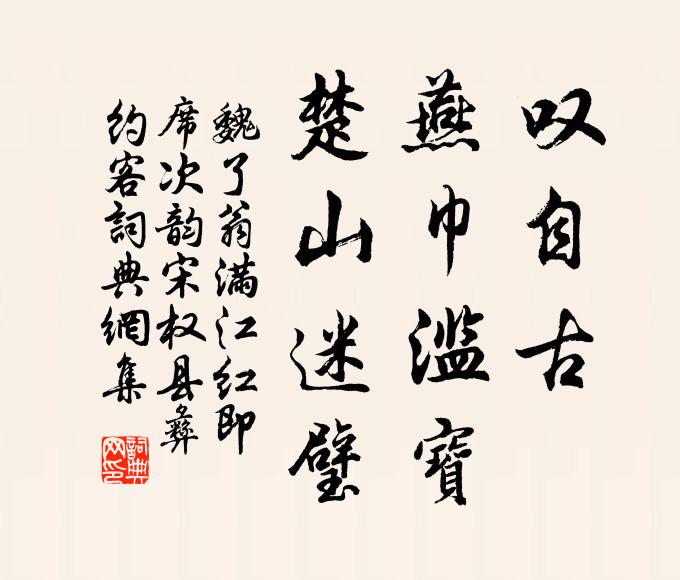 叹自古
燕巾滥寶
楚山迷璧
魏了翁满江红即
席次韵宋权县彝
约客詞典網集
詞典
网印